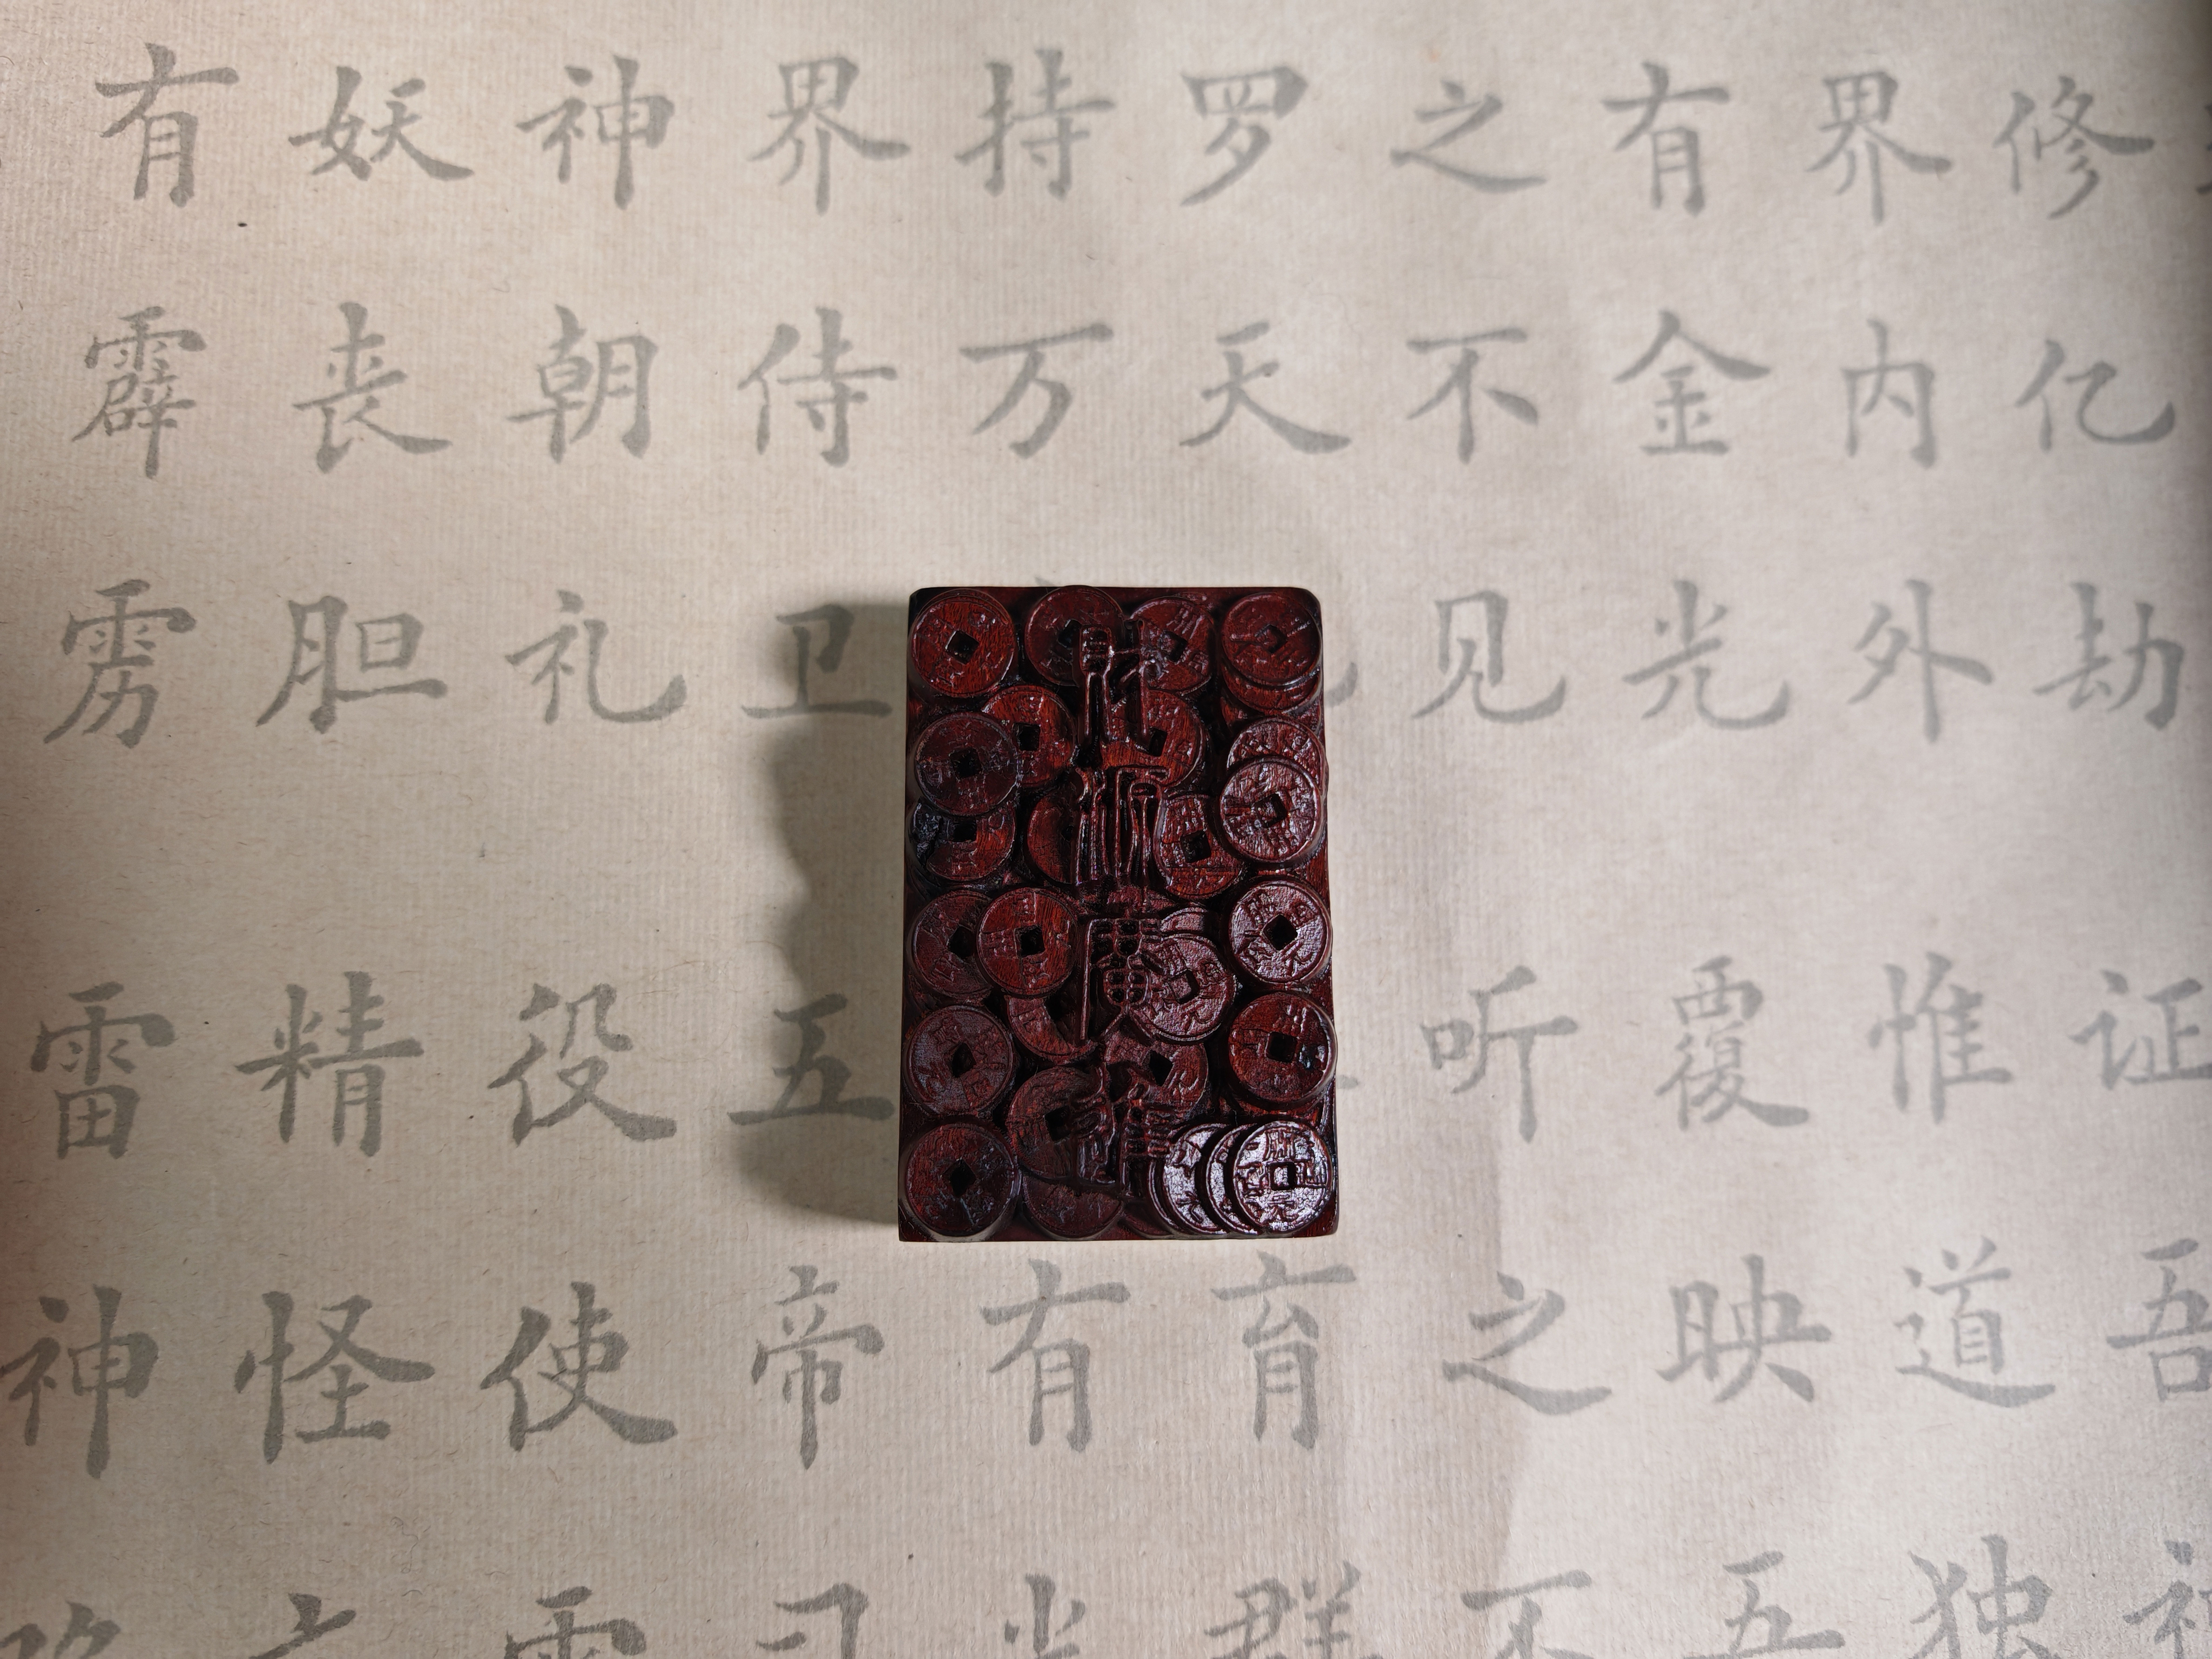 修亿劫证吾
界内外惟道独
有金光覆映
之不见听之不
罗天育群
持万有光
界侍卫五帝司
神朝礼役使雷
妖丧胆精怪
有霹雳雷神
財源廣進